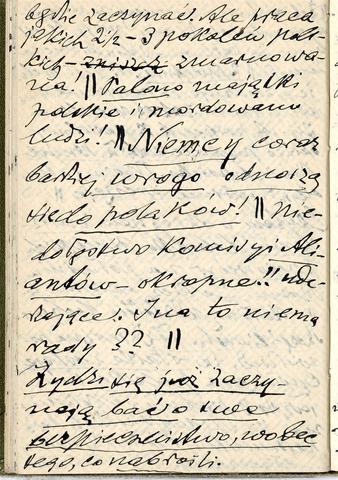 będzie zaczynać! Ale praca
jakich 2½ - 3 pokoleń pols-
kich - zmarnowa-
na! || Palono majątki
polskie i mordowano
ludzi! || Niemcy coraz
bardziej wrogo odnoszą
się do polaków! || Nie-
dołęstwo Komisyi Ali-
antów - okropne!! ude-
rzające. I na to niema
rady ?? ||
Żydzi się już zaczy-
nają bać o swe
bezpieczeństwo, wobec
tego, co nabroili.